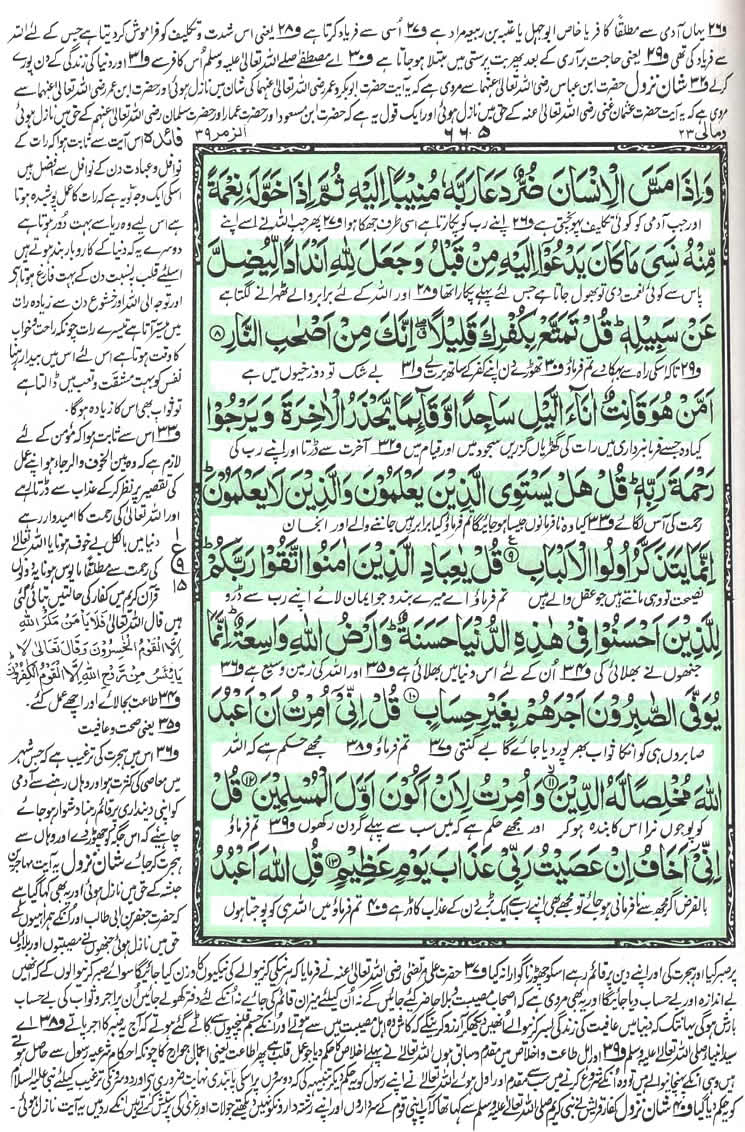 و۲۶ یہاں آدمی سے مطلقًا کافر یا خاص ابوجہل یا عتبہ بن ربیعہ مراد ہے و۲۷ اُسی سے فریاد کرتا ہے و۲۸ یعنی اس شدت و تکلیف کو فراموش کر دیتا ہے جس کے لئے اللہ
سے فریاد کی تھی و۲۹ یعنی حاجت برآری کے بعد پھر بت پرستی میں مبتلا ہو جاتا ہے و۳۰ اے مصطفٰے صلی اللہ تعالیٰ علیہ وسلم اس کافر سے و۳۱ اور دنیا کی زندگی کے دن پورے
کرلے و۳۲ شان نزول حضرت ابن عباس رضی اللہ تعالیٰ عنہما سے مروی ہے کہ یہ آیت حضرت ابوبکر و عمر رضی اللہ تعالیٰ عنہما کی شان میں نازل ہوئی اور حضرت ابن عمر رضی اللہ تعالیٰ عنہما سے
مروی ہے کہ یہ آیت حضرت عثمان غنی رضی اللہ تعالیٰ عنہ کے حق میں نازل ہوئی اور ایک قول یہ ہے کہ حضرت ابن مسعود اور حضرت عمار اور حضرت سلمان رضی اللہ تعالیٰ عنہم کے حق میں نازل ہوئی
ومالی ۲۳
۶۶۵
الزمر ۳۹
وَاِذَا مَسَّ الْاِنْسَانَ ضُرٌّ دَعَا رَبَّهٗ مُنِیْبًا اِلَیْهِ ثُمَّ اِذَا خَوَّلَهٗ نِعْمَةً
اور جب آدمی کو کوئی تکلیف پہونچتی ہے و۲۶ اپنے رب کو پکارتا ہے اسی طرف جھکا ہوا و۲۷ پھر جب اللہ نے اسے اپنے
مِّنْهُ نَسِیَ مَا كَانَ یَدْعُوْۤا اِلَیْهِ مِنْ قَبْلُ وَ جَعَلَ لِلّٰهِ اَنْدَادًا لِّیُضِلَّ
پاس سے کوئی نعمت دی تو بھول جاتا ہے جس لئے پہلے پکارا تھا و۲۸ اور اللہ کے لئے برابر والے ٹھہرانے لگتا ہے
عَنْ سَبِیْلِهٖ قُلْ تَمَتَّعْ بِكُفْرِكَ قَلِیْلًا اِنَّكَ مِنْ اَصْحٰبِ النَّارِ ۸
و۲۹ تاکہ اسکی راہ سے بہکا دے تم فرماؤ و۳۰ تھوڑے دن اپنے کفر کے ساتھ برت لے و۳۱ بے شک تو دوزخیوں میں ہے
اَمَّنْ هُوَ قَانِتٌ اٰنَآءَ الَّیْلِ سَاجِدًا وَّ قَآىٕمًا یَّحْذَرُ الْاٰخِرَةَ وَ یَرْجُوْا
کیا وہ جسے فرمانبرداری میں رات کی گھڑیاں گزریں سجود میں اور قیام میں و۳۲ آخرت سے ڈرتا اور اپنے رب کی
رَحْمَةَ رَبِّهٖ قُلْ هَلْ یَسْتَوِی الَّذِیْنَ یَعْلَمُوْنَ وَالَّذِیْنَ لَا یَعْلَمُوْنَ
رحمت کی آس لگائے و۳۳ کیا وہ نافرمانوں جیسا ہو جائیگا تم فرماؤ کیا برابر ہیں جاننے والے اور انجان
اِنَّمَا یَتَذَكَّرُ اُولُوا الْاَلْبَابِ ۹ قُلْ یٰعِبَادِ الَّذِیْنَ اٰمَنُوا اتَّقُوْا رَبَّكُمْ
نصیحت تو وہی مانتے ہیں جو عقل والے ہیں تم فرماؤ اے میرے بندو جو ایمان لائے اپنے رب سے ڈرو
لِلَّذِیْنَ اَحْسَنُوْا فِیْ هٰذِهِ الدُّنْیَا حَسَنَةٌ وَ اَرْضُ اللّٰهِ وَاسِعَةٌ اِنَّمَا
جنھوں نے بھلائی کی و۳۴ اُن کے لئے اس دنیا میں بھلائی ہے و۳۵ اور اللہ کی زمین وسیع ہے و۳۶
یُوَفَّی الصّٰبِرُوْنَ اَجْرَهُمْ بِغَیْرِ حِسَابٍ ۱۰ قُلْ اِنِّیْۤ اُمِرْتُ اَنْ اَعْبُدَ
صابروں ہی کو انکا ثواب بھرپور دیا جائے گا بے گنتی و۳۷ تم فرماؤ و۳۸ مجھے حکم ہے کہ اللہ
اللّٰهَ مُخْلِصًا لَّهُ الدِّیْنَ ۱۱ وَ اُمِرْتُ لِاَنْ اَكُوْنَ اَوَّلَ الْمُسْلِمِیْنَ ۱۲ قُلْ
کو پوجوں نرا اس کا بندہ ہو کر اور مجھے حکم ہے کہ میں سب سے پہلے گردن رکھوں و۳۹ تم فرماؤ
اِنِّیْۤ اَخَافُ اِنْ عَصَیْتُ رَبِّیْ عَذَابَ یَوْمٍ عَظِیْمٍ ۱۳ قُلِ اللّٰهَ اَعْبُدُ
بالفرض اگر مجھ سے نافرمانی ہو جائے تو مجھے بھی اپنے رب سے ایک بڑے دن کے عذاب کا ڈر ہے و۴۰ تم فرماؤ میں اللہ ہی کو پوجتا ہوں
فائدہ اس آیت سے ثابت ہوا کہ رات کے
نوافل و عبادت دن کے نوافل سے افضل ہیں
اسکی ایک وجہ تو یہ ہے کہ رات کا عمل پوشیدہ ہوتا
ہے اس لیے وہ ریا سے بہت دور ہوتا ہے
دوسرے یہ کہ دنیا کے کاروبار بند ہوتے ہیں
اسلئے قلب بہ نسبت دن کے بہت فارغ ہوتا ہے
اور توجہ الی اللہ اور خشوع دن سے زیادہ رات
میں میسر آتا ہے تیسرے رات چونکہ راحت و خواب
کا وقت ہوتا ہے اس لئے اس میں بیدار رہنا
نفس کو بہت مشقت و تعب میں ڈالتا ہے
تو ثواب بھی اس کا زیادہ ہوگا۔
و۳۳ اس سے ثابت ہوا کہ مؤمن کے لئے
لازم ہے کہ وہ بین الخوف والرجا ہو اپنے عمل
کی تقصیر پر نظر کر کے عذاب سے ڈرتا رہے
اور اللہ تعالیٰ کی رحمت کا امیدوار رہے
دنیا میں بالکل بے خوف ہونا یا اللہ تعالیٰ
کی رحمت سے مطلقًا مایوس ہونا یہ دونوں
قرآن کریم میں کفار کی حالتیں بتائی گئی
ہیں قال اللہ تعالیٰ فَلَا یَاْمَنُ مَكْرَ اللّٰهِ
اِلَّا الْقَوْمُ الْخٰسِرُوْنَ وقال تعالیٰ لَا
یَایْـَٔسُ مِنْ رَّوْحِ اللّٰهِ اِلَّا الْقَوْمُ الْكٰفِرُوْنَ
و۳۴ طاعت بجا لائے اور اچھے عمل کئے۔
و۳۵ یعنی صحت و عافیت
و۳۶ اس میں ہجرت کی ترغیب ہے کہ جس شہر
میں معاصی کی کثرت ہو اور وہاں رہنے سے آدمی
کو اپنی دینداری پر قائم رہنا دشوار ہو جائے
چاہئے کہ اس جگہ کو چھوڑ دے اور وہاں سے
ہجرت کر جائے شان نزول یہ آیت مہاجرین
حبشہ کے حق میں نازل ہوئی اور یہ بھی کہا گیا ہے
کہ حضرت جعفر بن ابی طالب اور انکے ہمراہیوں کے
حق میں نازل ہوئی جنھوں نے مصیبتوں اور بلاؤں
ع
۹
۱۵
پر صبر کیا اور ہجرت کی اور اپنے دین پر قائم رہے اسکو چھوڑنا گوارا نہ کیا و۳۷ حضرت علی مرتضیٰ رضی اللہ تعالیٰ عنہ نے فرمایا کہ ہر نیکی کرنیوالے کی نیکیوں کا وزن کیا جائیگا سوائے صبر کرنیوالوں کے کہ انھیں
بے اندازہ اور بے حساب دیا جائیگا اور یہ بھی مروی ہے کہ اصحاب مصیبت و بلا حاضر کئے جائیں گے نہ اُن کیلئے میزان قائم کی جائے نہ اُنکے لئے دفتر کھولے جائیں اُن پر اجر و ثواب کی بے حساب
بارش ہوگی یہاں تک کہ دنیا میں عافیت کی زندگی بسر کرنیوالے اُنھیں دیکھکر آرزو کرینگے کہ کاش وہ اہل مصیبت میں سے ہوتے اور اُنکے جسم قینچیوں سے کاٹے گئے ہوتے کہ آج یہ صبر کا اجر پاتے و۳۸ اے
سید انبیا صلی اللہ تعالیٰ علیہ وسلم و۳۹ اور اہل طاعت و اخلاص میں مقدم و سابق ہوں اللہ تعالیٰ نے پہلے اخلاص کا حکم دیا جو عمل قلب ہے پھر اطاعت یعنی اعمال جوارح کا چونکہ احکام شرعیہ رسول سے حاصل ہوتے
ہیں وہی انکے پہنچانے والے ہیں تو وہ اُنکے شروع کرنے میں سب سے مقدم اور اول ہوئے اللہ تعالیٰ نے اپنے رسول کو یہ حکم دیکر تنبیہ کی کہ دوسروں پر اسکی پابندی نہایت ضروری ہے اور دوسروں کی ترغیب کیلئے نبی علیہ السلام
کو یہ حکم دیا گیا و۴۰ شان نزول کفار قریش نے نبی کریم صلی اللہ تعالیٰ علیہ وسلم سے کہا تھا کہ آپ اپنی قوم کے سرداروں اور اپنے رشتہ داروں کو نہیں دیکھتے جو لات و عزّٰی کی پرستش کرتے ہیں انکے رد میں یہ آیت نازل ہوئی۔